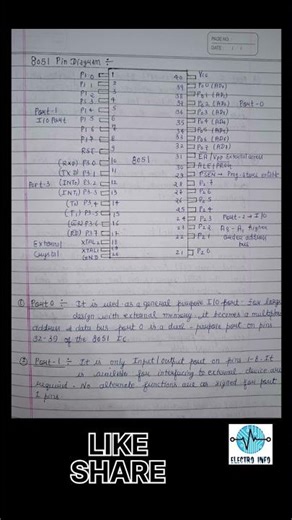 PAGE NO.:
DATE: / /
8051 Pin Diagram :-
P1.0 1 40 Vcc
P1.1 2 39 P0.0 (AD0)
P1.2 3 38 P0.1 (AD1)
P1.3 4 37 P0.2 (AD2) Port-0
Port-1 P1.4 5 36 P0.3 (AD3)
I/O Port P1.5 6 35 P0.4 (AD4)
P1.6 7 34 P0.5 (AD5)
P1.7 8 33 P0.6 (AD6)
RST 9 32 P0.7 (AD7)
(RXD) P3.0 10 8051 31 EA/Vpp External access
(TXD) P3.1 11 30 ALE/PROG
Port-3 (INT0) P3.2 12 29 PSEN Prog. store enable
(INT1) P3.3 13 28 P2.7
(T0) P3.4 14 27 P2.6
(T1) P3.5 15 26 P2.5
(WR) P3.6 16 25 P2.4
(RD) P3.7 17 24 P2.3 Port-2 → I/O
External XTAL2 18 23 P2.2 Higher
Crystal XTAL1 19 22 P2.1 order address bus
GND 20 21 P2.0
① Port 0 :- It is used as a general purpose I/O port. For large
design with external memory, it becomes a multiplex
address & data bus. port 0 is a dual-purpose port on pins
32-39 of the 8051 Ic.
② Port-1 :- It is only Input/output port on pins 1-8. It
is for interfacing to external device as
required. No alternate functions are as signed for port
1 pins
LIKE
SHARE
ELECTRO INFO